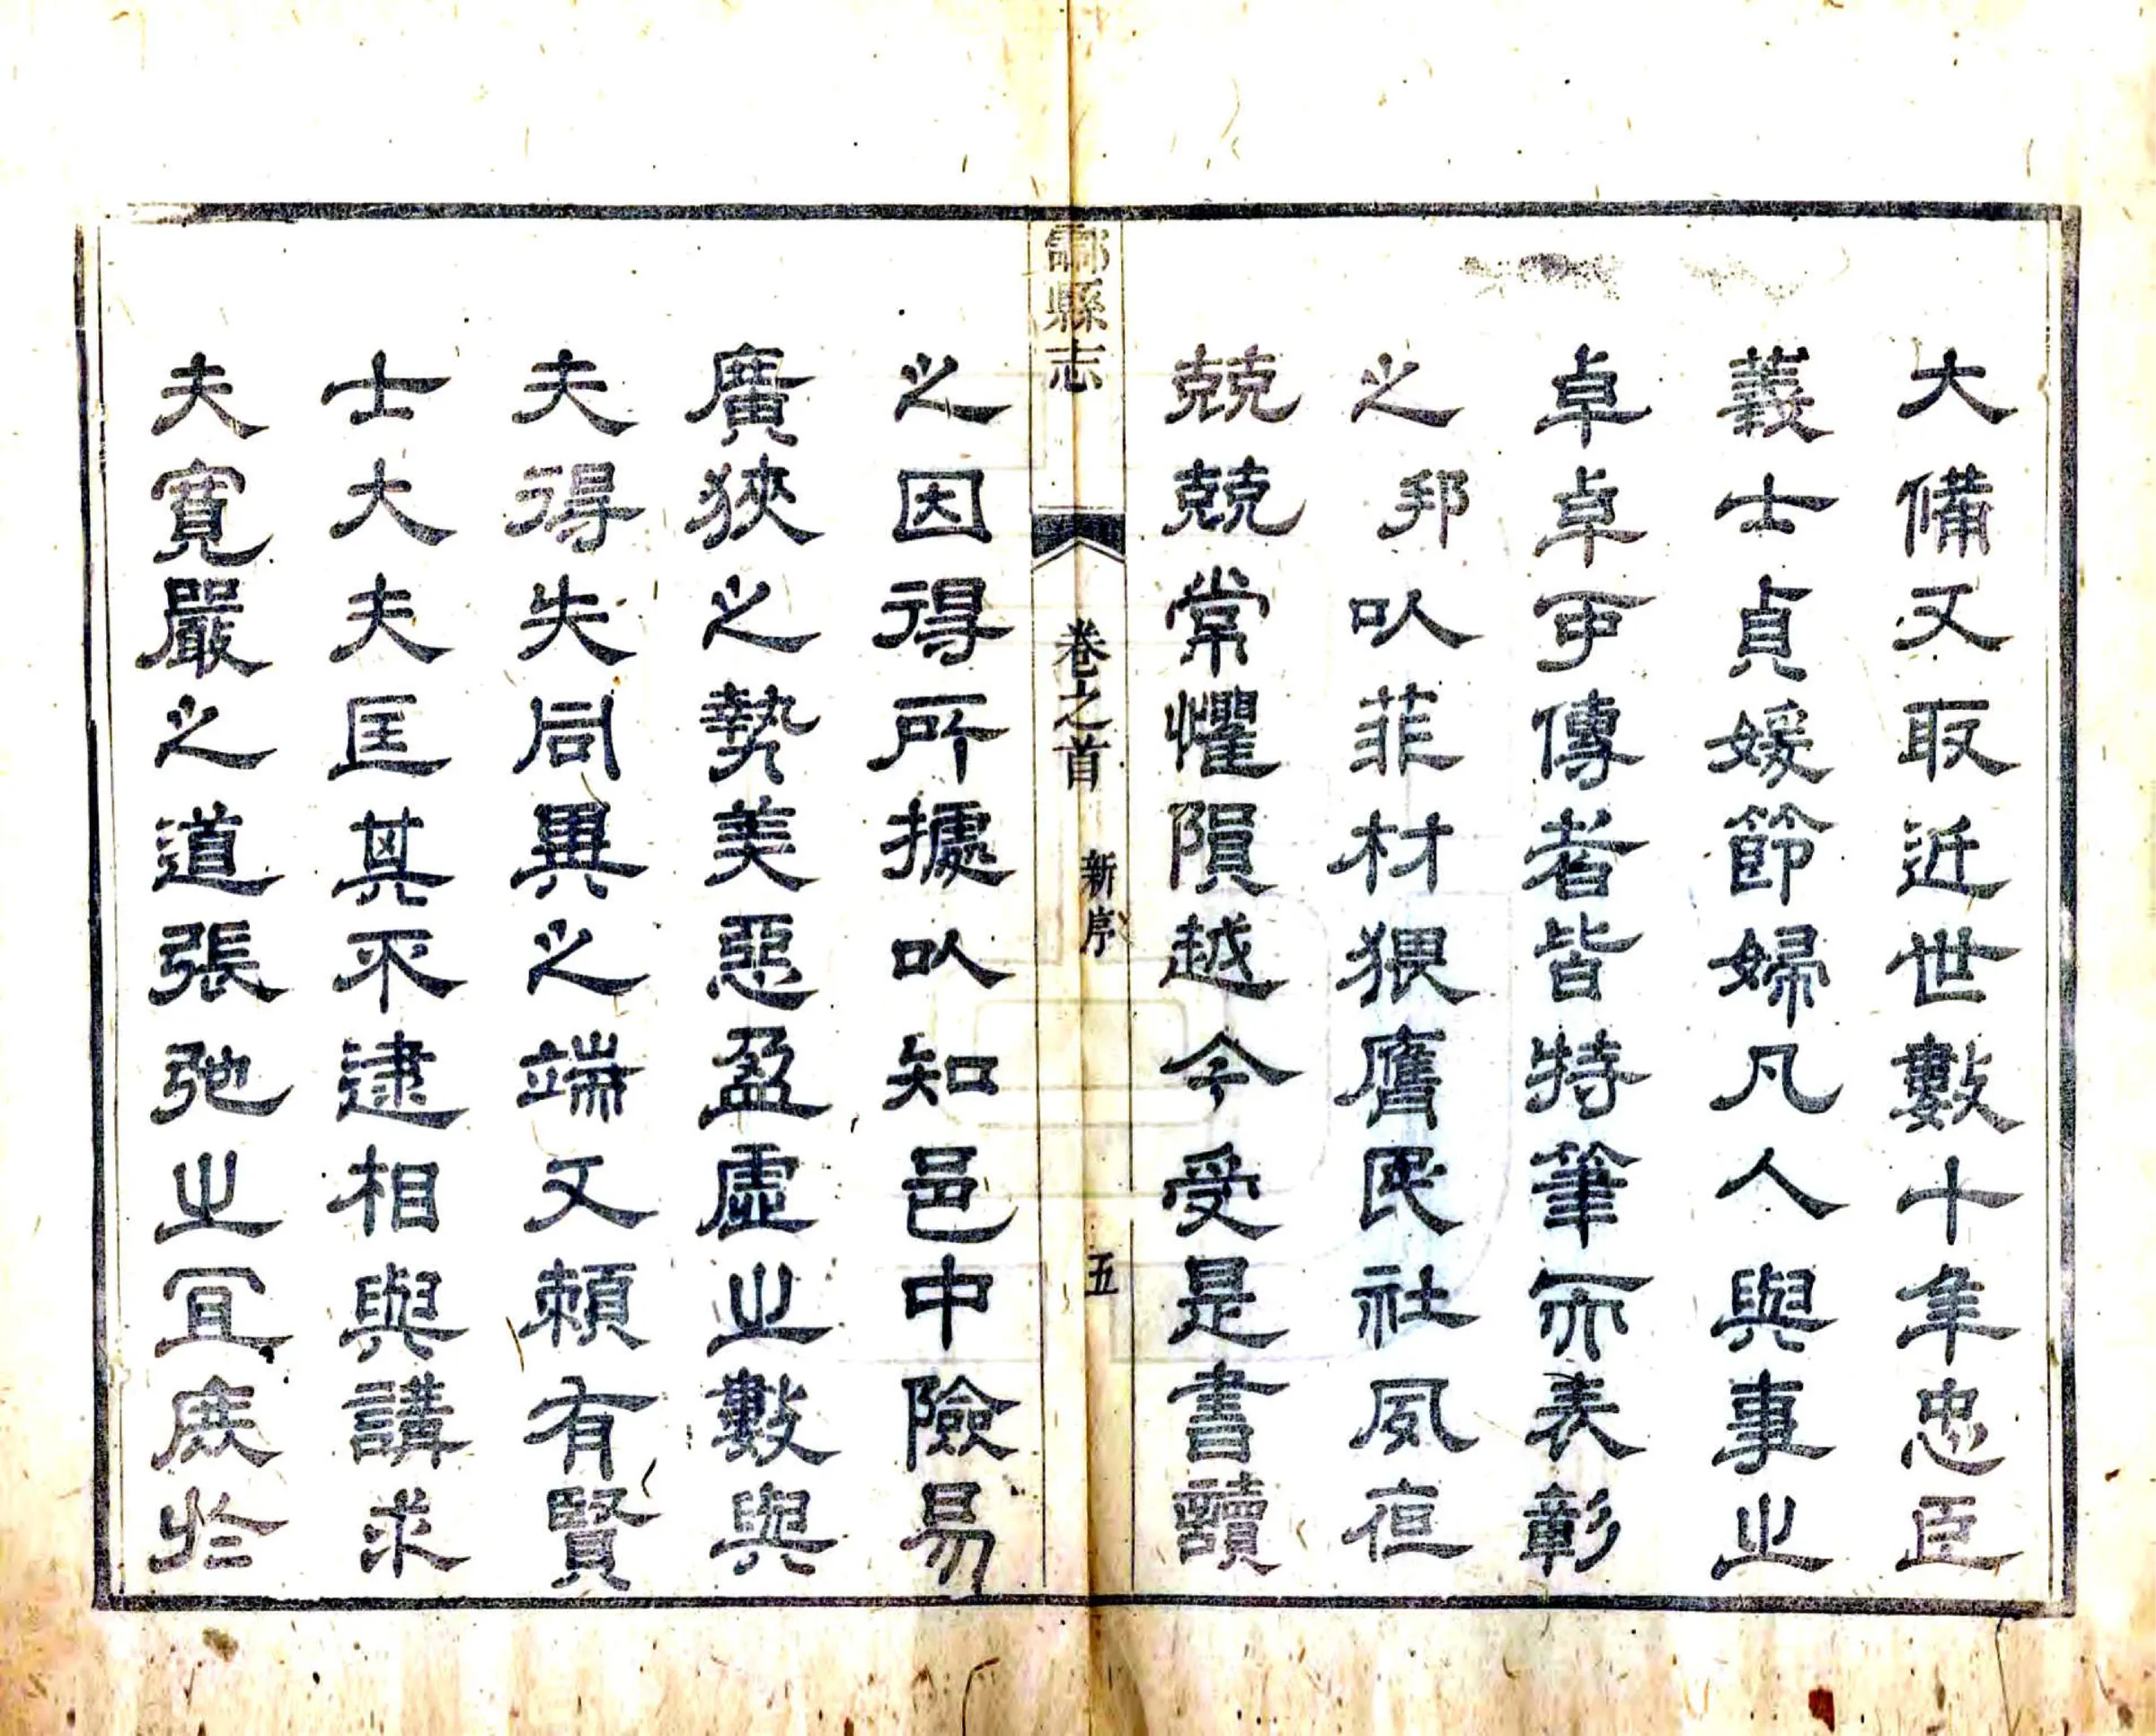 大備又取近世數十年忠臣
義士貞媛節婦凡人與事之
卓卓可傳者皆特筆而表彰
之邦以菲材猥膺民社夙夜
兢兢常懼隕越今受是書讀
酃縣志 卷之首 新序 五
之因得所據以知邑中險易
廣狹之勢美惡盈虛之數與
夫得失同異之端又賴有賢
士大夫匡其不逮相與講求
夫寬嚴之道張弛之宜庶於